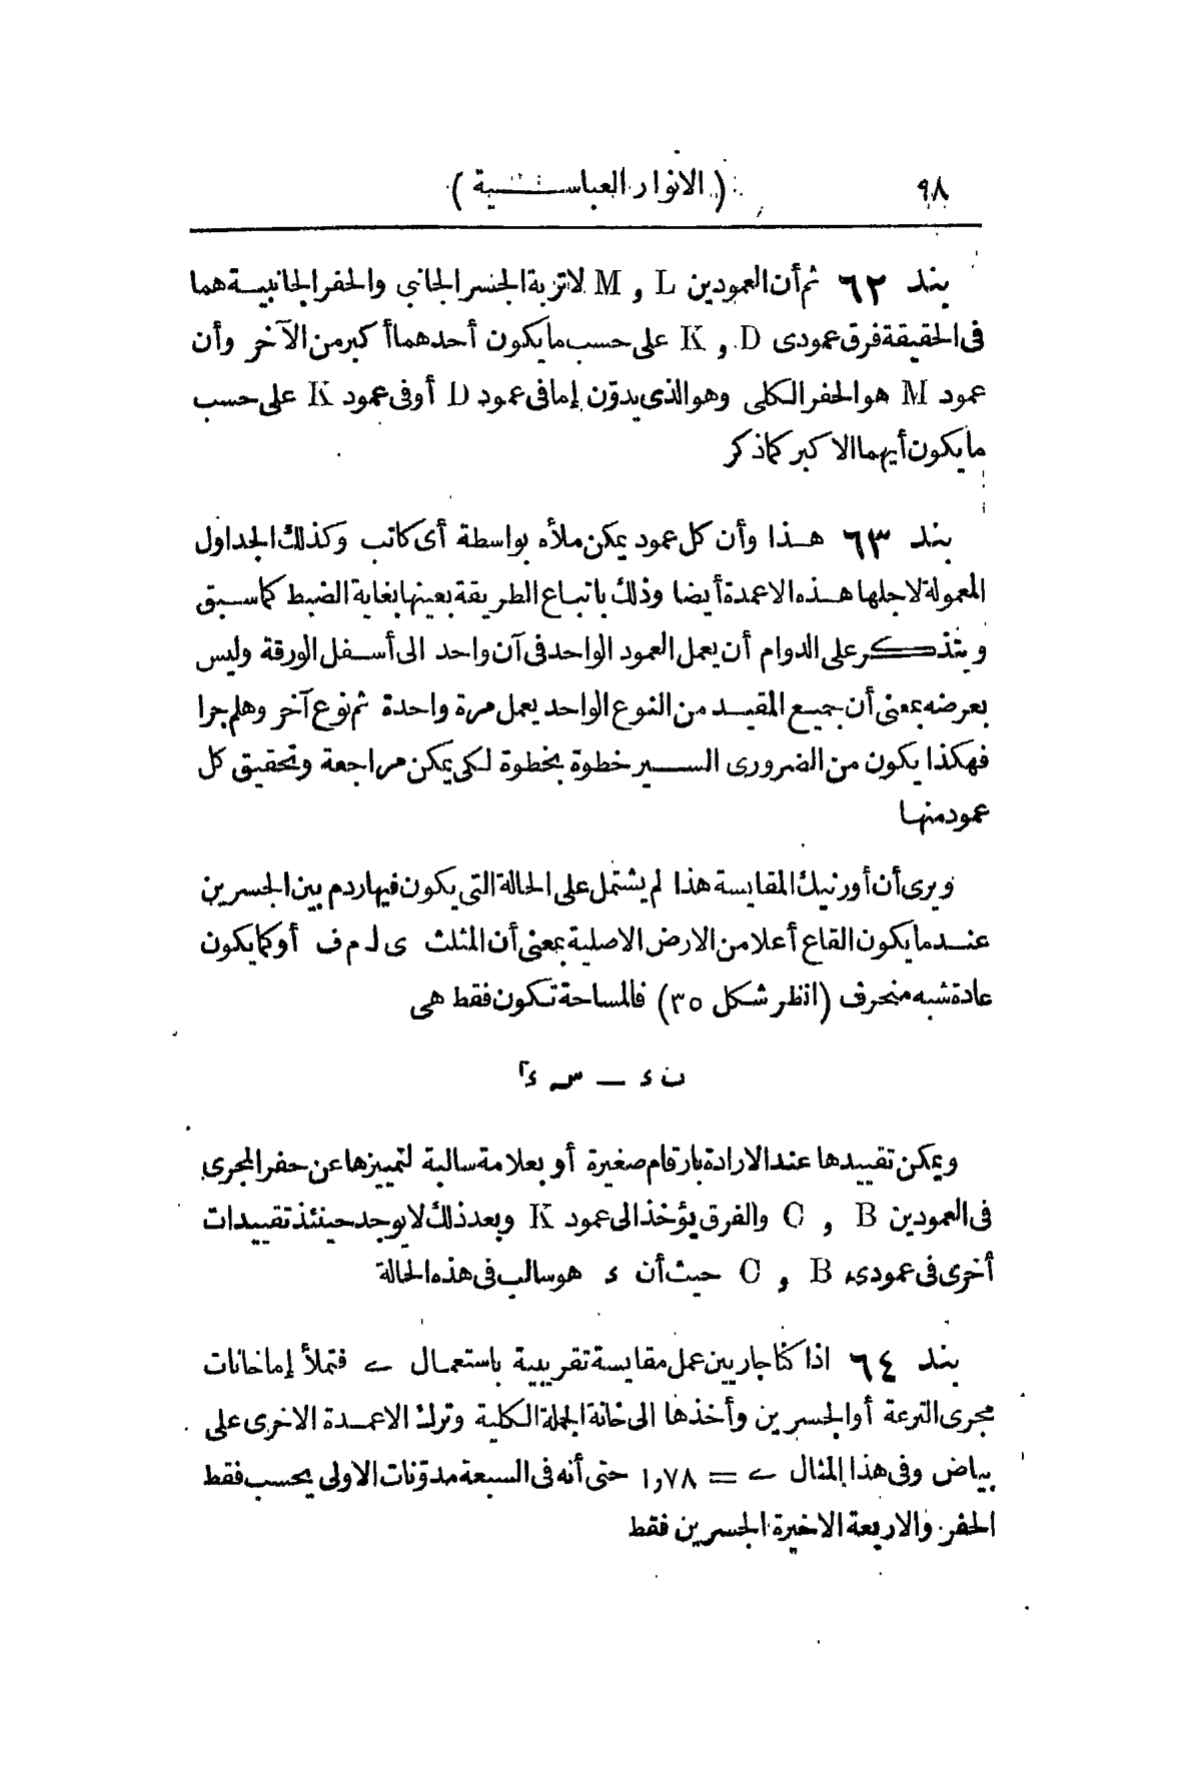 ٩٨ (الانوار العباسية)
بند ٦٢ ثم أن العمودين L و M لاتربة الجسر الجانبي والحفر الجانبية هما
فى الحقيقة فرق عمودى D و K على حسب ما يكون أحدهما أكبر من الآخر وأن
عمود M هو الحفر الكلى وهو الذى يدوّن إما فى عمود D أو فى عمود K على حسب
ما يكون أيهما الاكبر كما ذكر
بند ٦٣ هذا وأن كل عمود يمكن ملأه بواسطة أى كاتب وكذلك الجداول
المعمولة لاجلها هذه الاعمدة أيضا وذلك باتباع الطريقة بعينها بغاية الضبط كما سبق
ويتذكر على الدوام أن يعمل العمود الواحد فى آن واحد الى أسفل الورقة وليس
بعرضه بمعنى أن جميع المقيد من النوع الواحد يعمل مرة واحدة ثم نوع آخر وهلم جرا
فهكذا يكون من الضرورى السير خطوة بخطوة لكى يمكن مراجعة وتحقيق كل
عمود منها
ويرى أن أورنيك المقايسة هذا لم يشتمل على الحالة التى يكون فيها ردم بين الجسرين
عند ما يكون القاع أعلا من الارض الاصلية بمعنى أن المثلث ى ل م ف أو كما يكون
عادة شبه منحرف (انظر شكل ٣٥) فالمساحة تكون فقط هى
ن ء — س ء٢
ويمكن تقييدها عند الارادة بارقام صغيرة أو بعلامة سالبة لتمييزها عن حفر المجرى
فى العمودين B و C والفرق يؤخذ الى عمود K وبعد ذلك لا يوجد حينئذ تقييدات
أخرى فى عمودى B و C حيث أن ء هو سالب فى هذه الحالة
بند ٦٤ اذا كنا جاريين عمل مقايسة تقريبية باستعمال ے فتملأ إما خانات
مجرى الترعة أو الجسرين وأخذها الى خانة الجملة الكلية وترك الاعمدة الاخرى على
بياض وفى هذا المثال ے = ١,٧٨ حتى أنه فى السبعة مدوّنات الاولى يحسب فقط
الحفر والاربعة الاخيرة الجسرين فقط